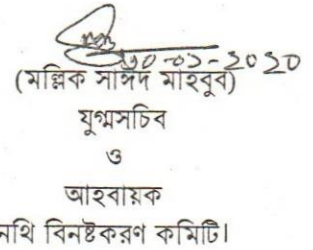 ৩০-০১-২০২০
(মল্লিক সাঈদ মাহবুব)
যুগ্মসচিব
ও
আহবায়ক
নথি বিনষ্টকরণ কমিটি।